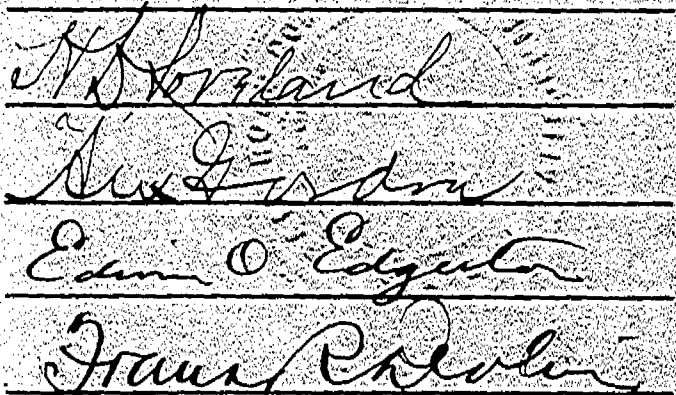 H D Loveland
Alex Gordon
Edwin O Edgerton
Frank R Devlin